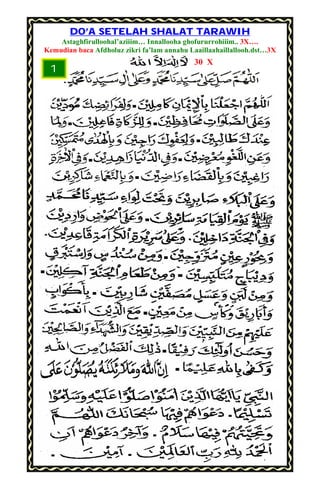 DO'A SETELAH SHALAT TARAWIH
Astaghfirulloohal'aziiim… Innallooha ghofururrohiiim.. 3X….
Kemudian baca Afdholuz zikri fa'lam annahu Laaillaahaillallooh.dst…3X
لَا إِلٰهَ إِلَّا اللهُ 30 X
1
اَللّٰهُمَّ صَلِّ عَلَى سَيِّدِنَا مُحَمَّدٍ وَعَلَى آلِ سَيِّدِنَا مُحَمَّدٍ.
اَللّٰهُمَّ اجْعَلْنَا بِالْإِيْمَانِ كَامِلِيْنَ. وَلِفَرَائِضِكَ مُؤَدِّيْنَ
وَعَلَى الصَّلَوَاتِ مُحَافِظِيْنَ. وَلِلزَّكَاةِ فَاعِلِيْنَ. وَلِمَا
عِنْدَكَ طَالِبِيْنَ. وَلِعَفْوِكَ رَاجِيْنَ. وَبِالْهُدَى مُتَمَسِّكِيْنَ
وَعَنِ اللَّغْوِ مُعْرِضِيْنَ. وَفِي الدُّنْيَا زَاهِدِيْنَ. وَفِي الْآخِرَةِ
رَاغِبِيْنَ. وَبِالْقَضَاءِ رَاضِيْنَ. وَبِالنَّعْمَاءِ شَاكِرِيْنَ
وَعَلَى الْبَلَاءِ صَابِرِيْنَ. وَتَحْتَ لِوَاءِ سَيِّدِنَا مُحَمَّدٍ
ﷺ يَوْمَ الْقِيَامَةِ سَائِرِيْنَ. وَعَلَى الْحَوْضِ وَارِدِيْنَ
وَفِي الْجَنَّةِ دَاخِلِيْنَ. وَعَلَى سَرِيْرَةِ الْكَرَامَةِ قَاعِدِيْنَ.
وَبِحُوْرٍ عِيْنٍ مُتَزَوِّجِيْنَ. وَمِنْ سُنْدُسٍ وَإِسْتَبْرَقٍ
وَدِيْبَاجٍ مُتَلَبِّسِيْنَ. وَمِنْ طَعَامِ الْجَنَّةِ آكِلِيْنَ.
وَمِنْ لَبَنٍ وَعَسَلٍ مُصَفَّيْنِ شَارِبِيْنَ. بِأَكْوَابٍ
وَأَبَارِيْقَ وَكَأْسٍ مِنْ مَعِيْنٍ. مَعَ الَّذِيْنَ أَنْعَمْتَ
عَلَيْهِمْ مِنَ النَّبِيِّيْنَ وَالصِّدِّيْقِيْنَ وَالشُّهَدَاءِ وَالصَّالِحِيْنَ
وَحَسُنَ أُولٰئِكَ رَفِيْقًا. ذٰلِكَ الْفَضْلُ مِنَ اللهِ
وَكَفَى بِاللهِ عَلِيْمًا. إِنَّ اللهَ وَمَلَائِكَتَهُ يُصَلُّوْنَ عَلَى
النَّبِيِّ يَا أَيُّهَا الَّذِيْنَ آمَنُوْا صَلُّوْا عَلَيْهِ وَسَلِّمُوْا
تَسْلِيْمًا. دَعْوَاهُمْ فِيْهَا سُبْحَانَكَ اللّٰهُمَّ
وَتَحِيَّتُهُمْ فِيْهَا سَلَامٌ. وَآخِرُ دَعْوَاهُمْ أَنِ
الْحَمْدُ لِلّٰهِ رَبِّ الْعَالَمِيْنَ. آمِيْنَ.